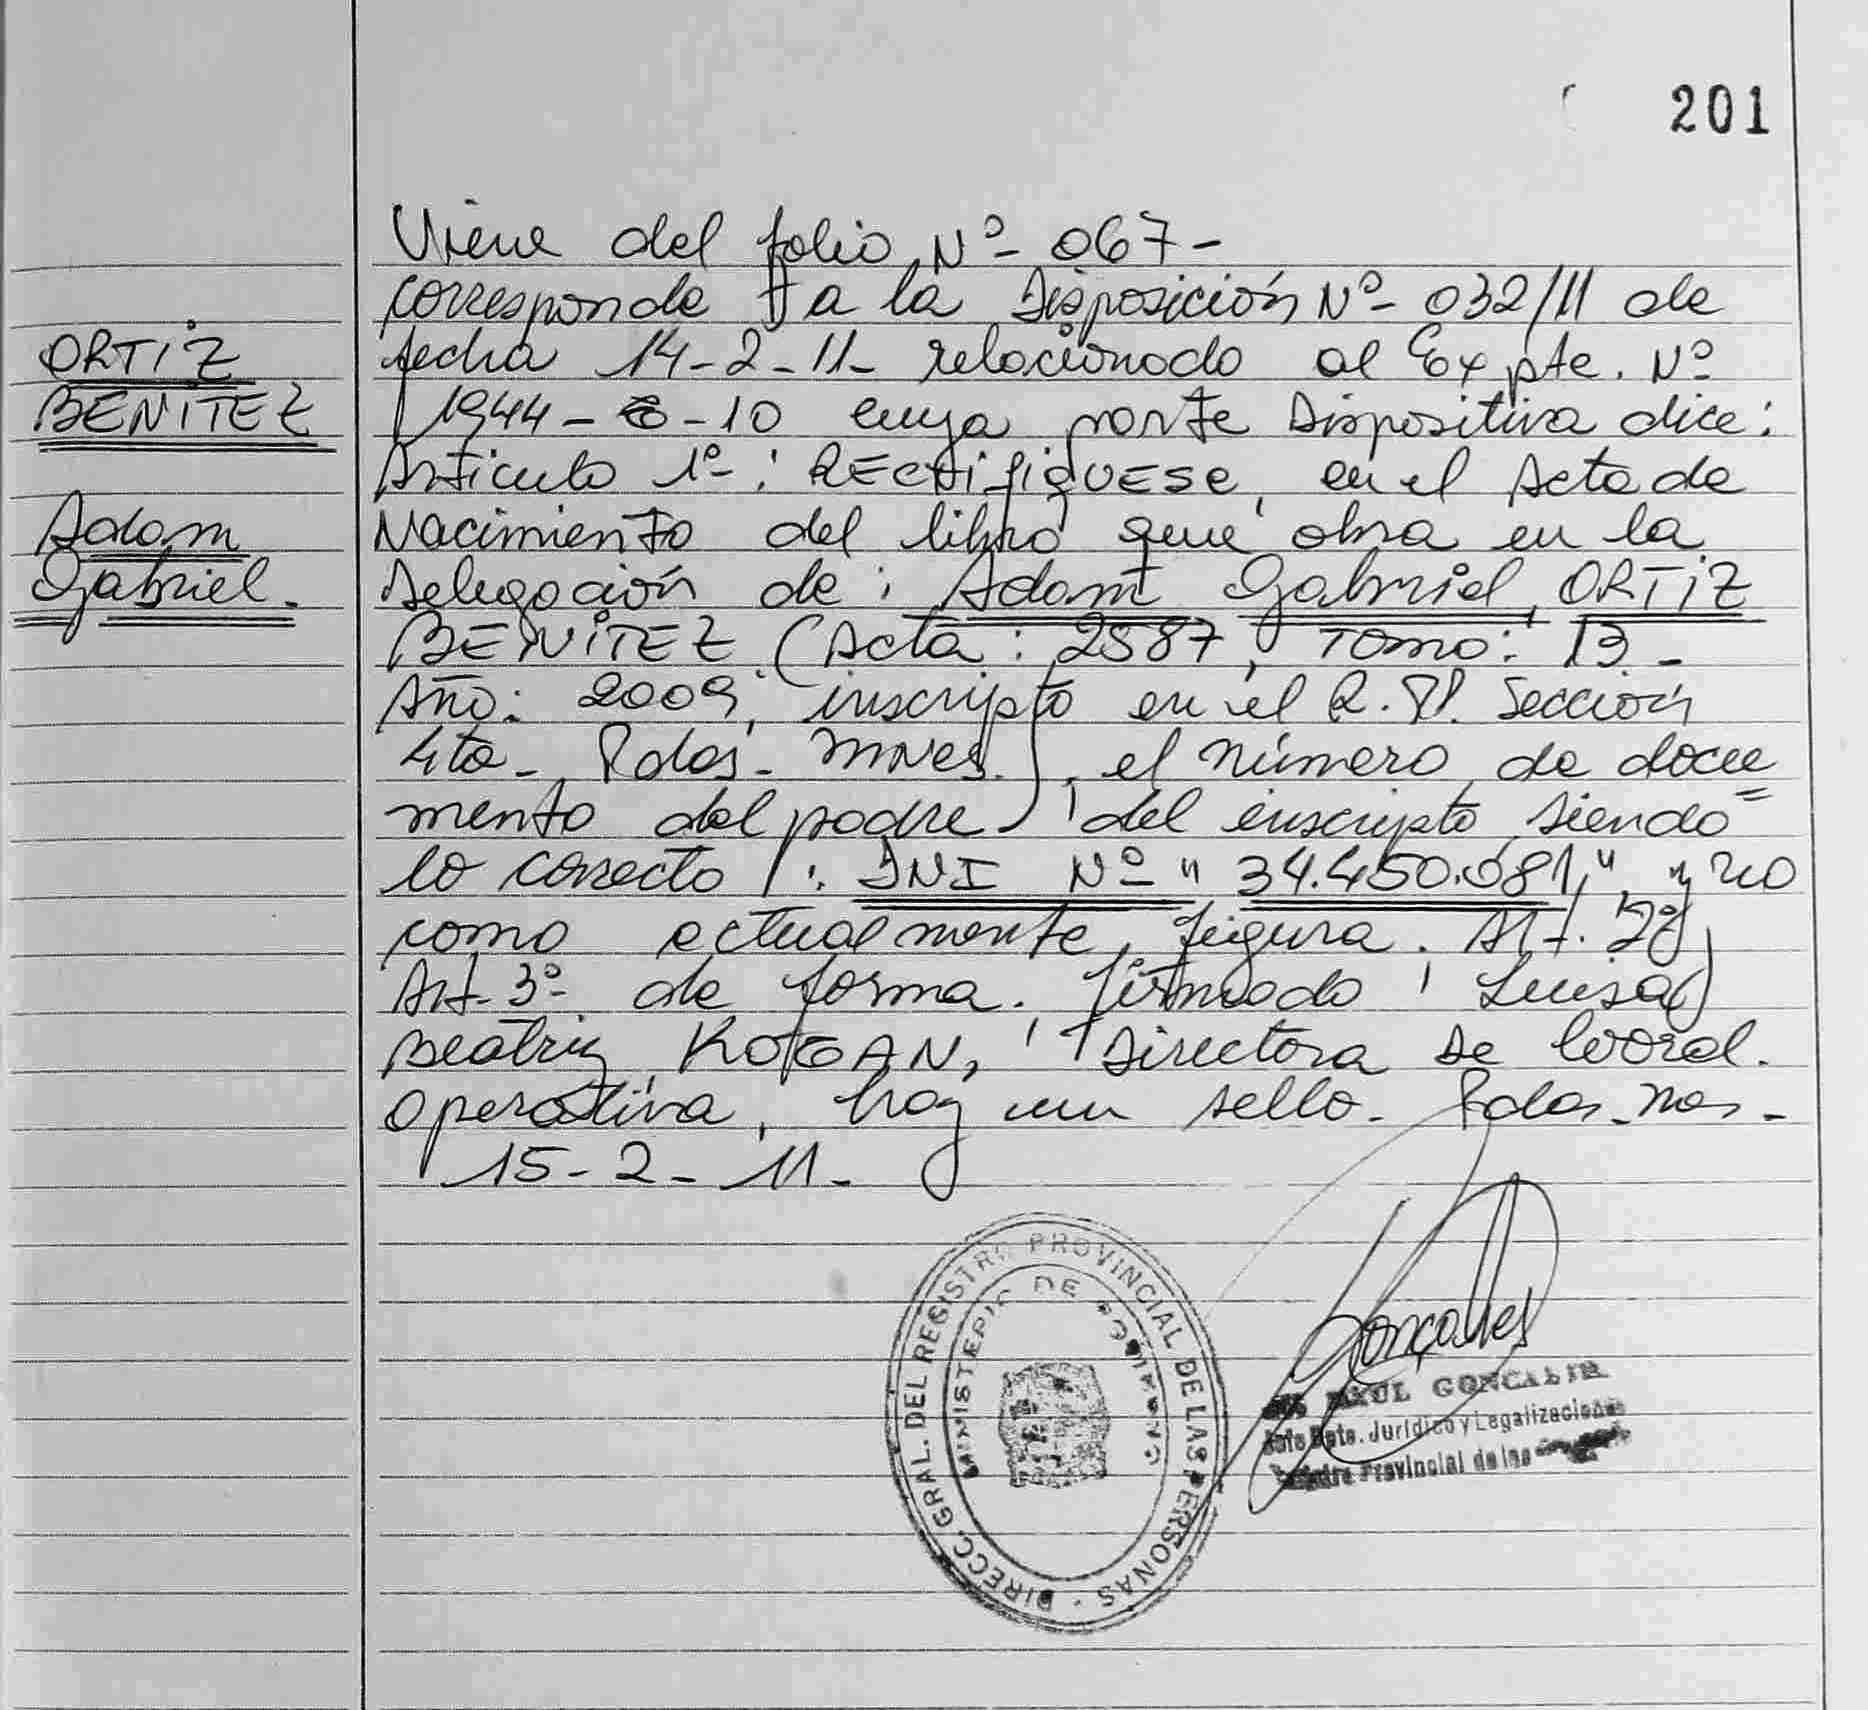 201
Viene del folio Nº- 067-
corresponde a la Disposición Nº- 032/11 de
fecha 14-2-11- relacionado al Expte. Nº
1944- -10 cuya parte Dispositiva dice:
Articulo 1º-: RECtifiQUESE, en el Acta de
Nacimiento del libro que obra en la
Delegación de: Adam Gabriel, ORTIZ
BENITEZ (Acta: 2587, Tomo: 13-
Año: 2009, inscripto en el R.P. Sección
4ta- Pdas- Mnes.), el número de docu
mento del padre del inscripto, siendo
lo correcto: DNI Nº " 34.450.081", y no
como actualmente figura. Art. 2º,
Art- 3º- de forma. Firmado: Luisa
Beatriz KOGAN, Directora de Coord.
Operativa, hay un sello- Pdas-Mnes-
15-2-11-
ORTIZ
BENITEZ
Adam
Gabriel-
DIRECC. GRAL. DEL REGISTRO PROVINCIAL DE LAS PERSONAS
MINISTERIO DE GOBIERNO
Goncalves
RAUL GONCALVES
Jefe Dpto. Jurídico y Legalizaciones
Registro Provincial de las